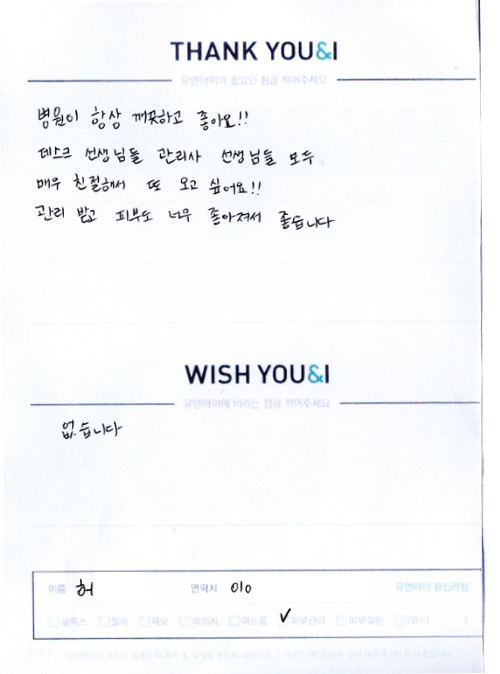 THANK YOU&I
유앤아이의 좋았던 점을 적어주세요
병원이 항상 깨끗하고 좋아요!!
데스크 선생님들 관리사 선생님들 모두
매우 친절해서 또 오고 싶어요!!
관리 받고 피부도 너무 좋아져서 좋습니다
WISH YOU&I
유앤아이에 바라는 점을 적어주세요
없습니다
이름 허 연락처 010 유앤아이 왕십리점
보톡스 필러 제모 레이저 여드름 ✓피부관리 피부질환 기타 ( )